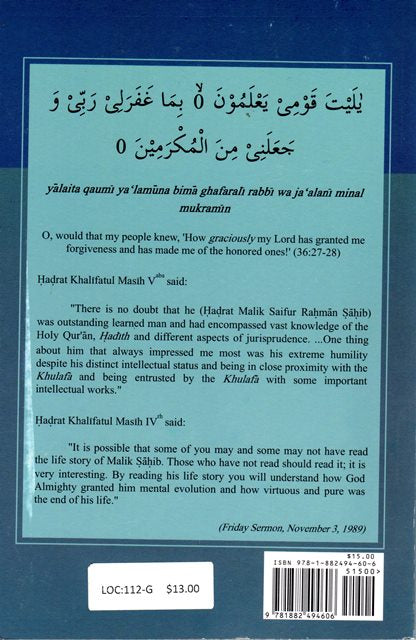 يٰلَيْتَ قَوْمِيْ يَعْلَمُوْنَ 0ۙ بِمَا غَفَرَلِيْ رَبِّيْ وَ
جَعَلَنِيْ مِنَ الْمُكْرَمِيْنَ 0
yālaita qaumī ya‘lamūna bimā ghafaralī rabbī wa ja‘alanī minal
mukramīn
O, would that my people knew, 'How graciously my Lord has granted me
forgiveness and has made me of the honored ones!' (36:27-28)
Ḥaḍrat Khalīfatul Masīḥ Vᵃᵇᵃ said:
"There is no doubt that he (Ḥaḍrat Malik Saifur Raḥmān Ṣāḥib)
was outstanding learned man and had encompassed vast knowledge of the
Holy Qur'ān, Ḥadīth and different aspects of jurisprudence. ...One thing
about him that always impressed me most was his extreme humility
despite his distinct intellectual status and being in close proximity with the
Khulafā and being entrusted by the Khulafā with some important
intellectual works."
Ḥaḍrat Khalīfatul Masīḥ IVᵗʰ said:
"It is possible that some of you may and some may not have read
the life story of Malik Ṣāḥib. Those who have not read should read it; it is
very interesting. By reading his life story you will understand how God
Almighty granted him mental evolution and how virtuous and pure was
the end of his life."
(Friday Sermon, November 3, 1989)
$15.00
ISBN 978-1-882494-60-6
51500>
9 781882 494606
LOC:112-G $13.00